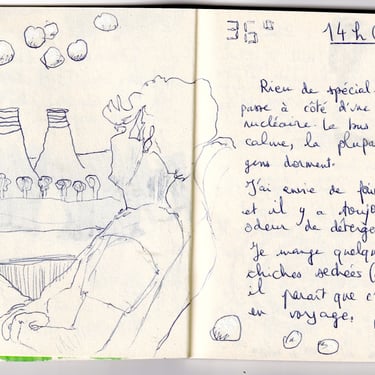 36° 14h
Rien de spécial.
passe à côté d'une
nucléaire. Le bus
calme, la plupa
gens dorment.
J'ai envie de
et il y a toujo
odeur de déterge
Je mange quelqu
chiches séchées (
il parait que c
en voyage.